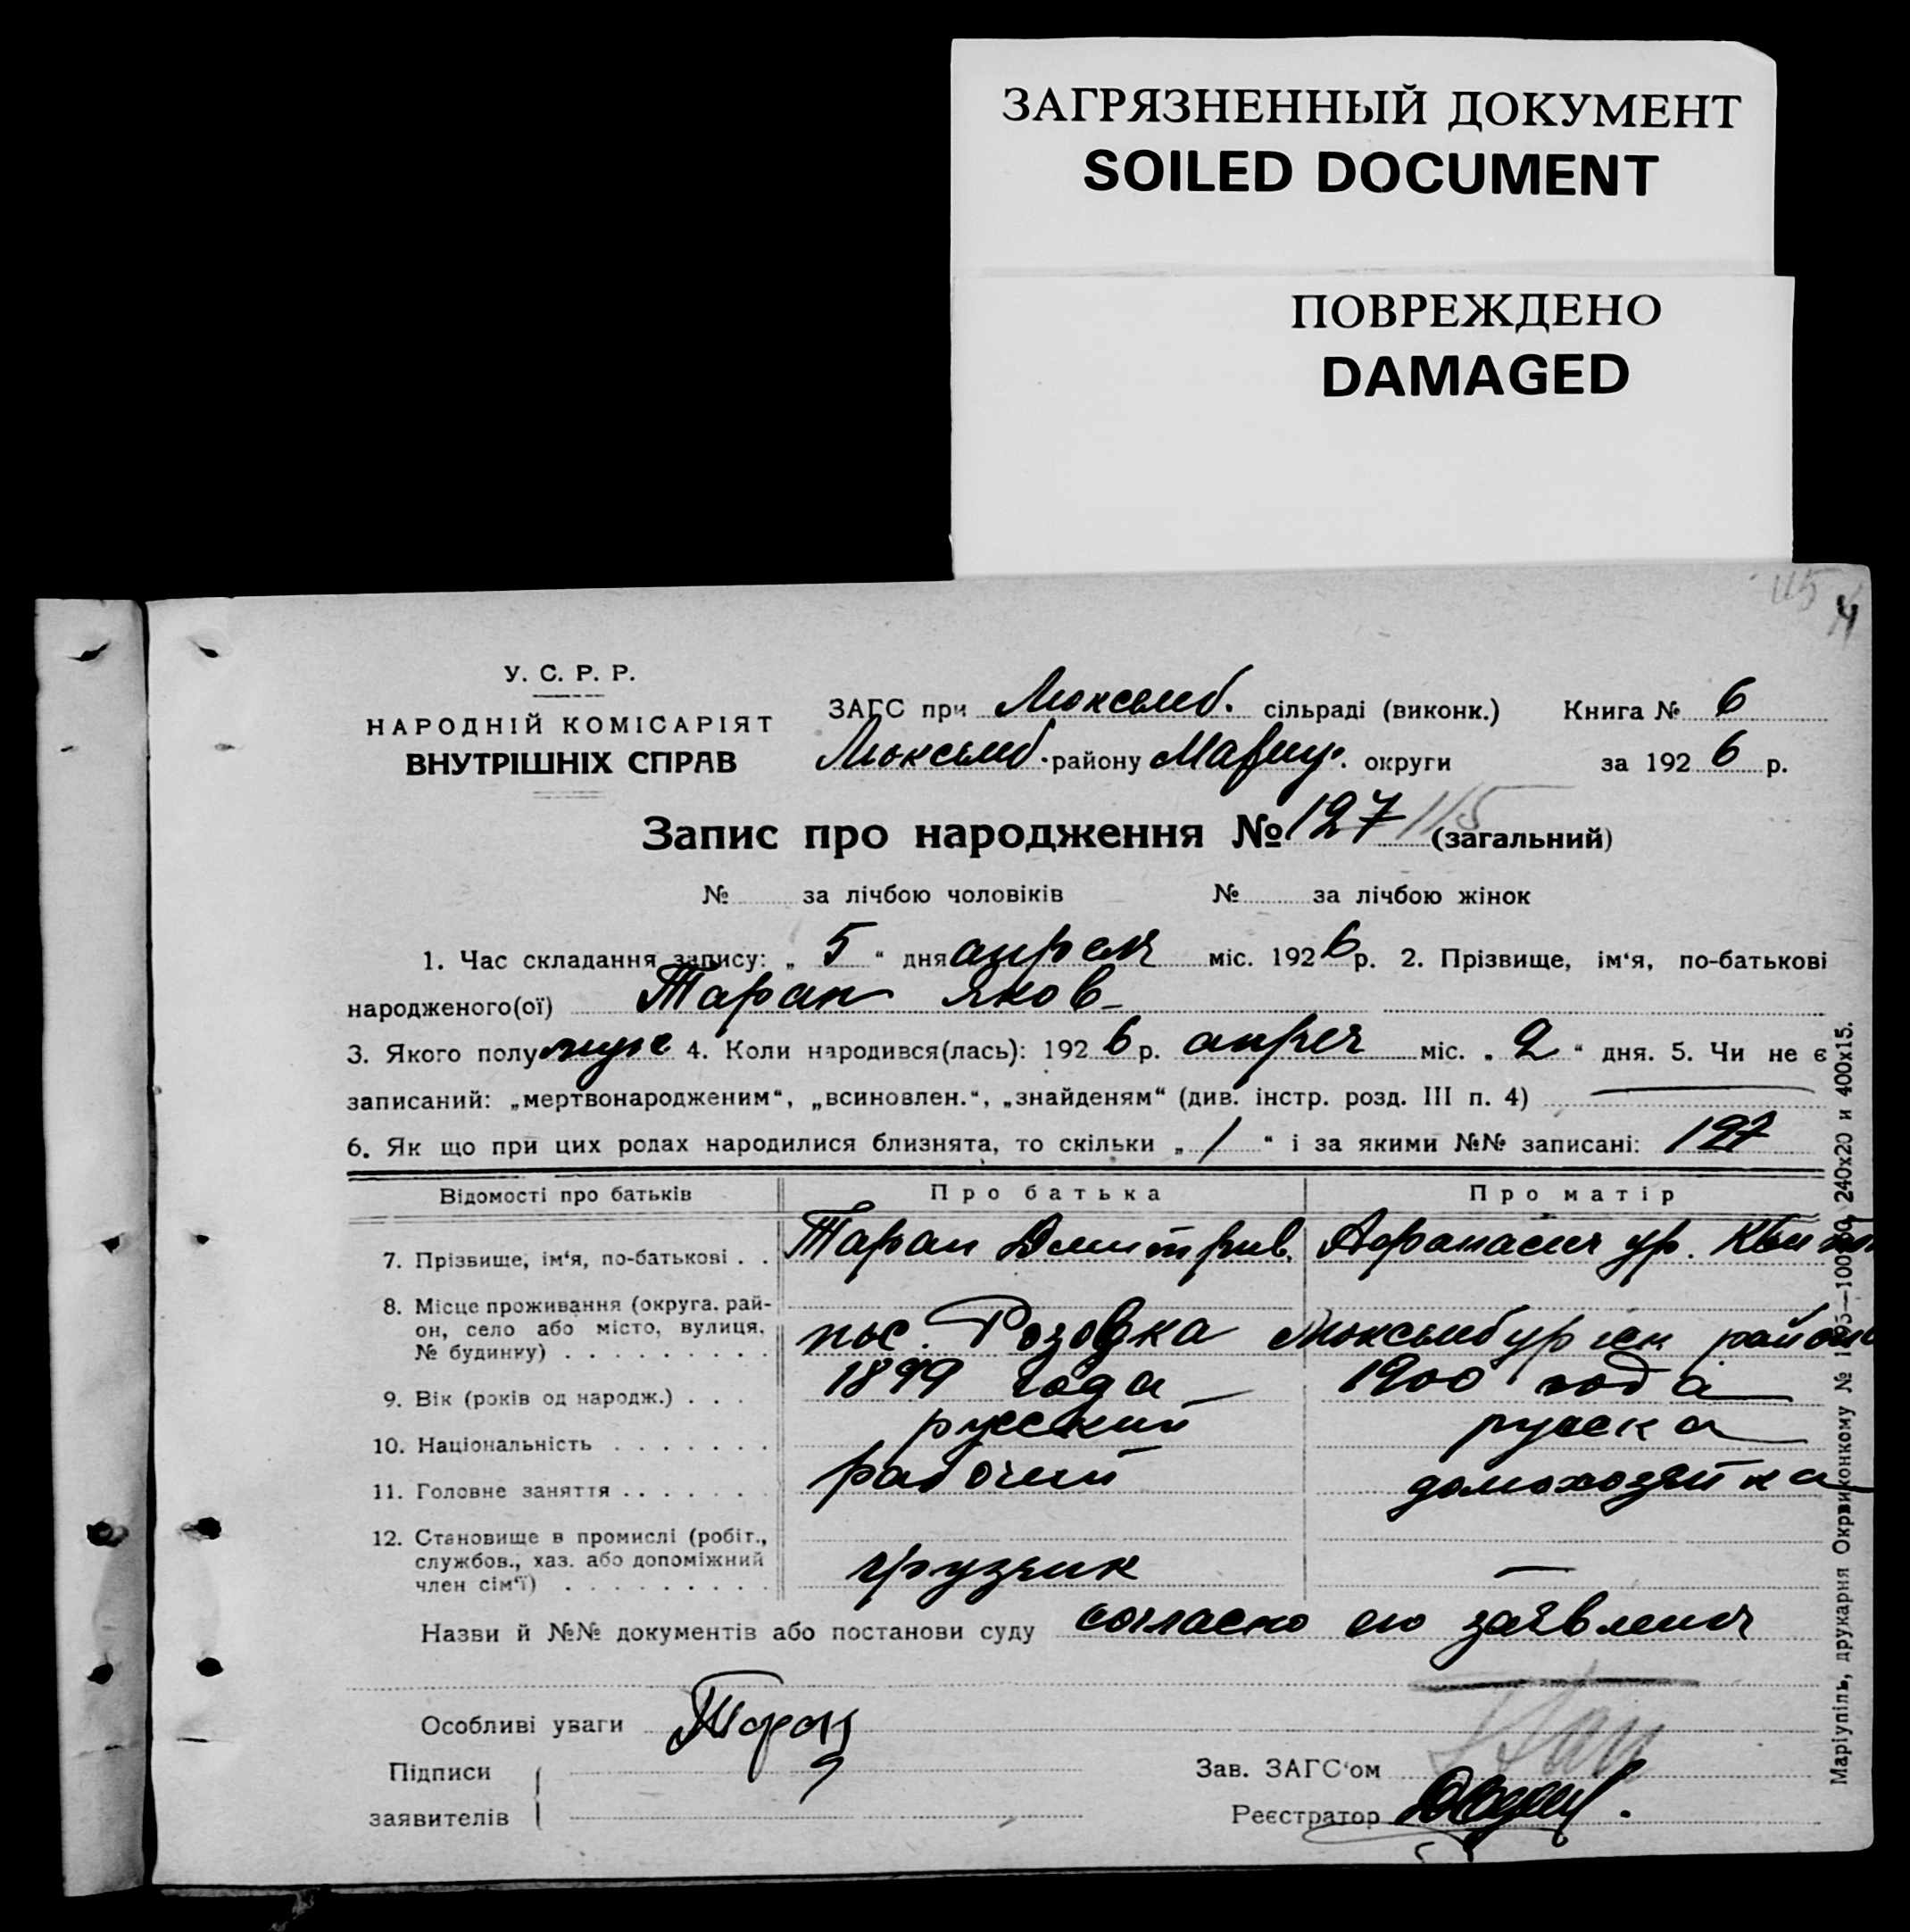 ЗАГРЯЗНЕННЫЙ ДОКУМЕНТ
SOILED DOCUMENT
ПОВРЕЖДЕНО
DAMAGED
115
У. С. Р. Р.
НАРОДНІЙ КОМІСАРІЯТ
ВНУТРІШНІХ СПРАВ
ЗАГС при Люксемб. сільраді (виконк.) Книга № 6
Люксемб. району Мариуп. округи за 192 6 р.
Запис про народження № 127 115 (загальний)
№ за лічбою чоловіків № за лічбою жінок
1. Час складання запису: „ 5 “ дня апреля міс. 192 6 р. 2. Прізвище, ім‘я, по-батькові
народженого(ої) Таран Яков
3. Якого полу муже 4. Коли народився(лась): 192 6 р. апреля міс. „ 2 “ дня. 5. Чи не є
записаний: „мертвонародженим“, „всиновлен.“, „знайденям“ (див. інстр. розд. III п. 4)
6. Як що при цих родах народилися близнята, то скільки „ 1 “ і за якими №№ записані: 127
Відомості про батьків Про батька Про матір
7. Прізвище, ім‘я, по-батькові . . Таран Дмитрив. Афанасия ур.
8. Місце проживання (округа, рай-
он, село або місто, вулиця,
№ будинку) . . . . . . . . . пос. Розовка Люксембургск района
9. Вік (років од народж.) . . . 1899 года 1900 года
10. Національність . . . . . . . русский руска
11. Головне заняття . . . . . . . рабочий домохозяйка
12. Становище в промислі (робіт.,
службов., хаз. або допоміжний
член сім‘ї) . . . . . . . . . грузчик —
Назви й №№ документів або постанови суду согласно его заявления
Особливі уваги Таран
Підписи
заявителів
Зав. ЗАГС‘ом
Реєстратор
Маріупіль, друкарня Окрвиконкому № 240х20 и 400х15.